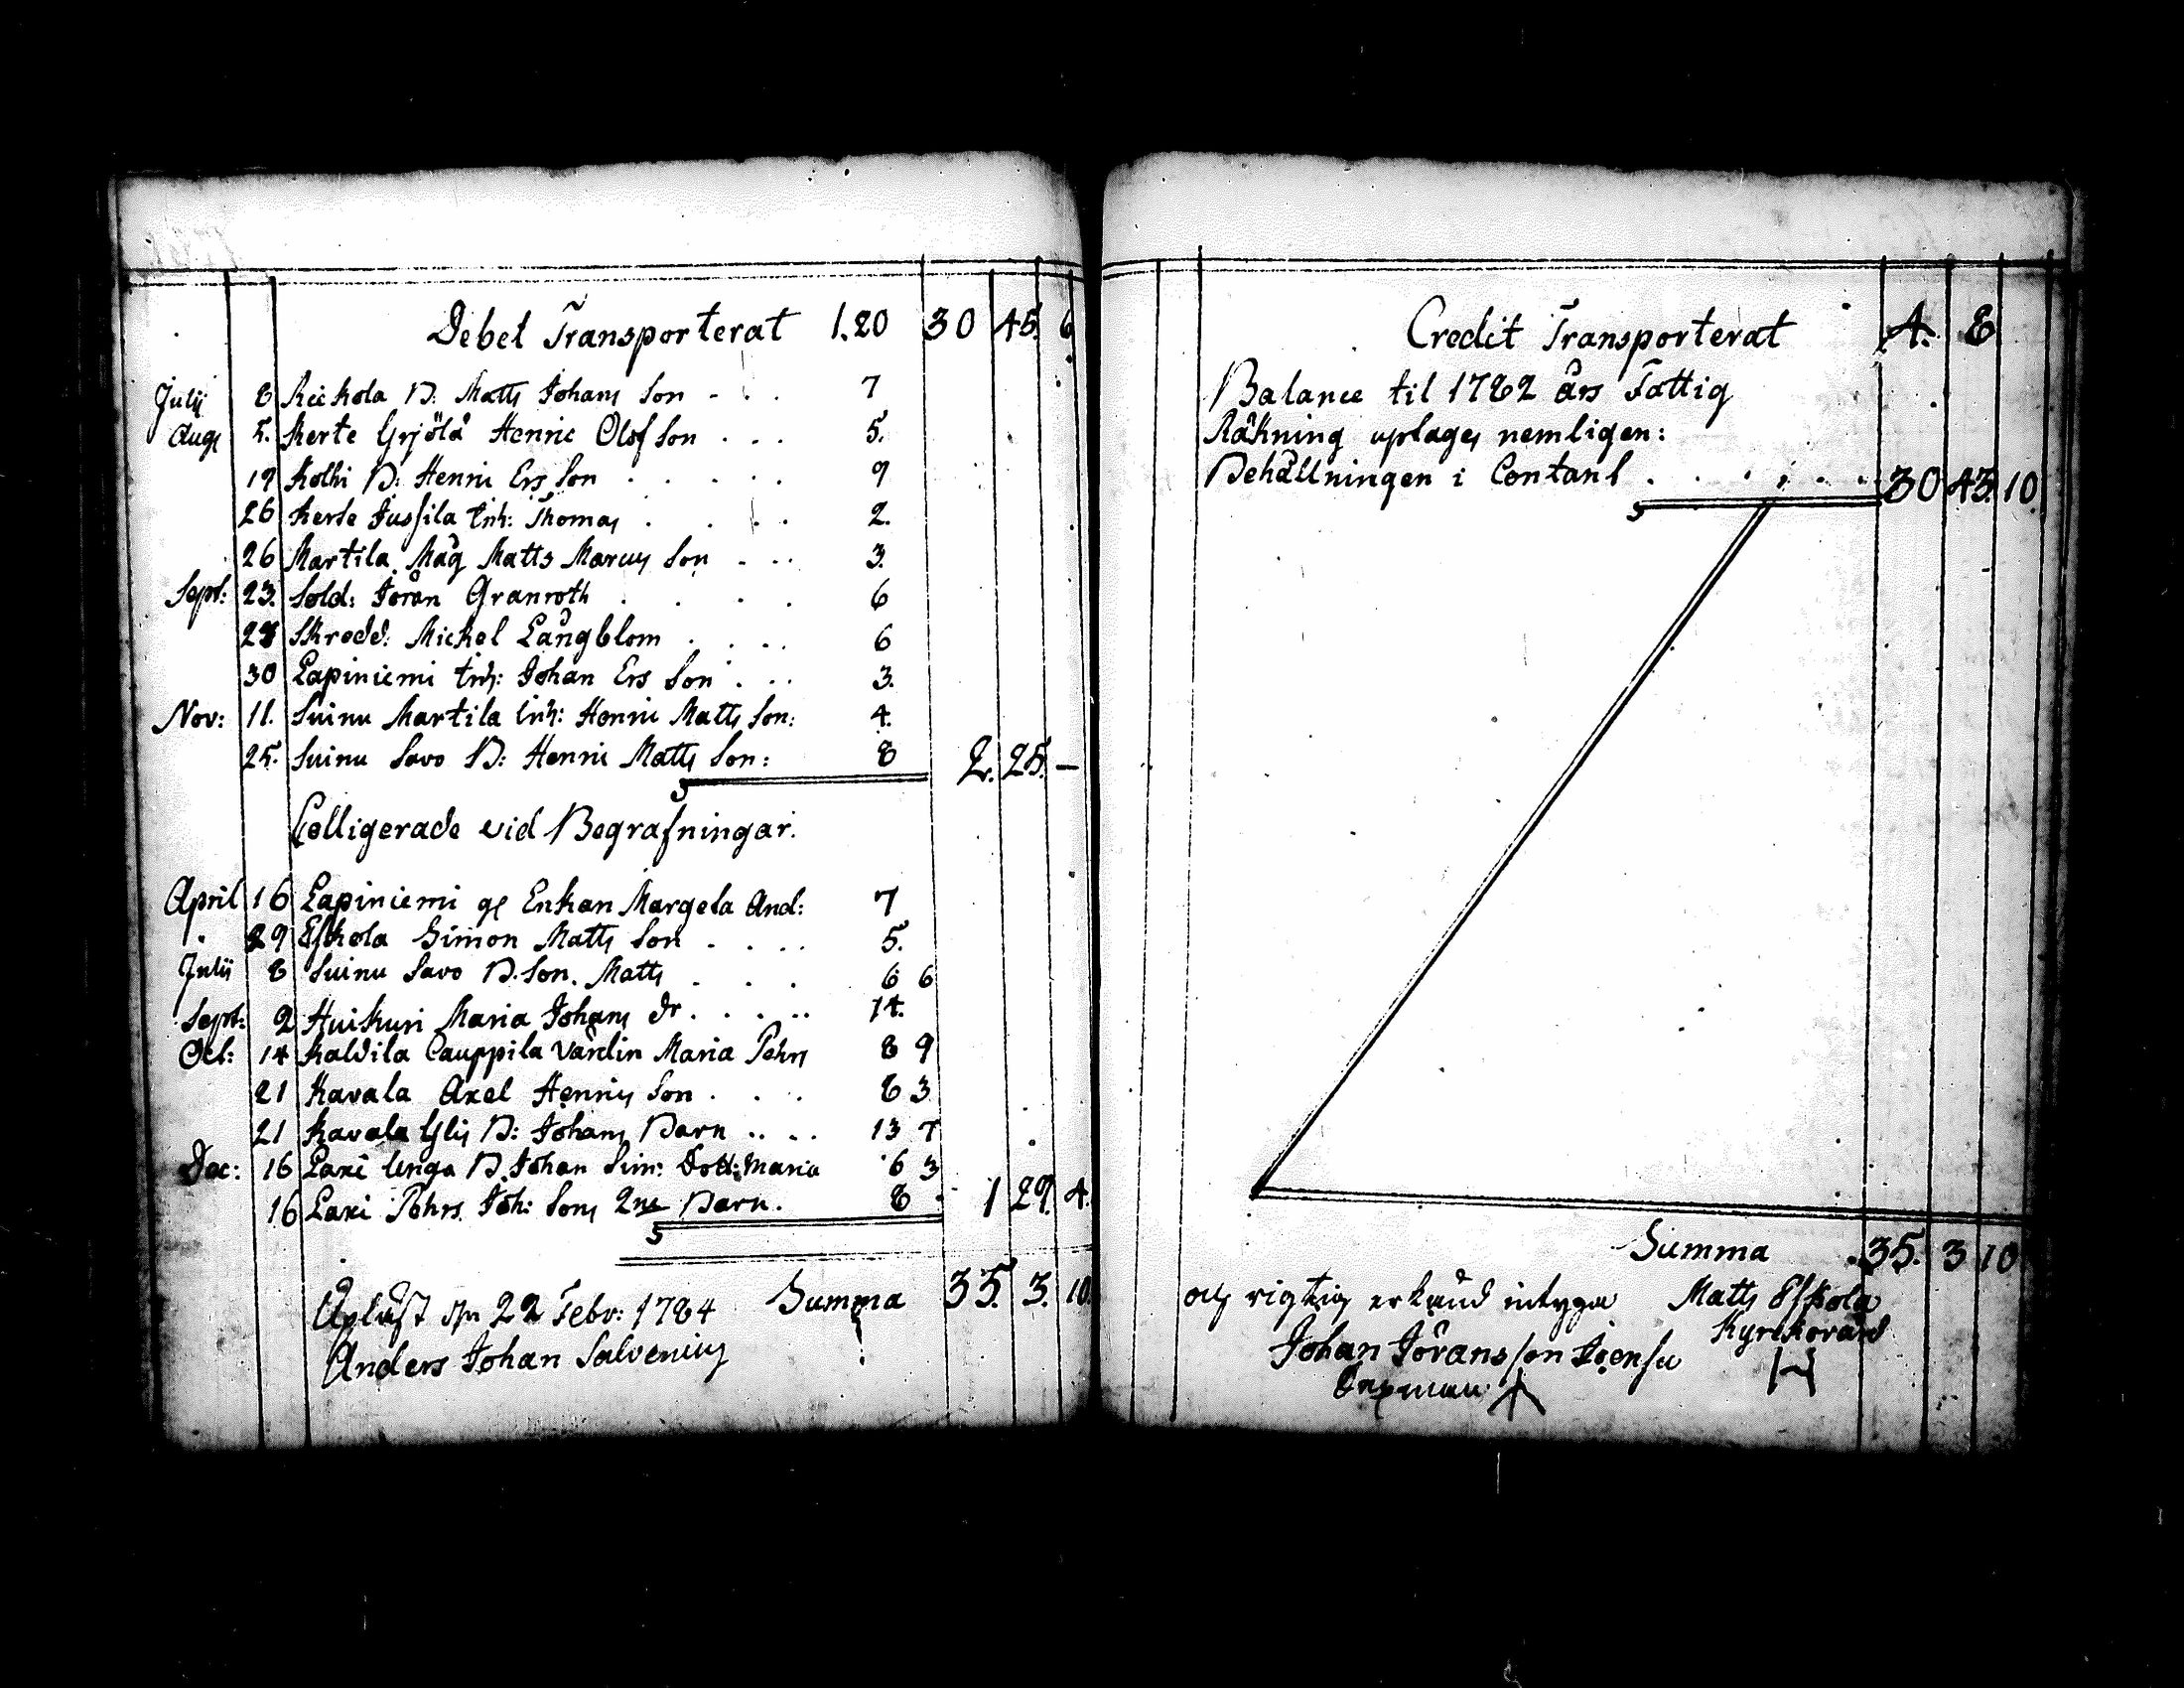 Debet Transporterat 1.20 30 45. 6
Julij 8 Rickola B. Matts Johans Son - . . 7
Aug 5. Kerte Yrjölä Henric Olof Son . . . 5.
19 Kolhi B: Henric Ers Son . . . . . 9
26 Kerte Jussila Inh: Thomas . . . . 2.
26 Martila Måg Matts Marcus Son - . . 3.
Sept: 23. Sold: Jöran Granroth . . . . 6
28 Skredd: Mickel Långblom . . . . 6
30 Lapiniemi Inh: Johan Ers Son . . . 3.
Nov: 11. Suinu Martila Inh: Henric Matts Son: 4.
25. Suinu Savo B: Henric Matts Son: 8 2. 25. —
Colligerade vid Begrafningar.
April 16 Lapiniemi gl Enkan Margeta And: 7
29 Eskola Simon Matts Son . . . . 5.
Julii 8 Suinu Savo B. Son. Matts . . . 6 6
Sept: 2 Huikuri Maria Johans dr. . . . . 14.
Oct: 14 Kaldila Cauppila Värdin Maria Pehrs 8 9
21 Kavala Axel Henrics Son . . . 8 3
21 Kavala Ylis B: Johans Barn .. .. 13 7
Dec: 16 Laxi Unga B. Johan Sim: Dott: Maria 6 3
16 Laxi Pehrs Joh: Sons 2ne Barn. 8 - 1 29. 4.
Summa 35. 3. 10.
Upläst den 22 Febr: 1784
Anders Johan Salvenius
Credit Transporterat 4. 8
Balance til 1782 års Fattig
Räkning uptages nemligen:
Behållningen i Contant . . . . . . 30 43. 10.
Summa 35. 3 10
och rigtig erkänd intygar Matts Eskola
Kyrckovärd
Johan Jöransson Joensu